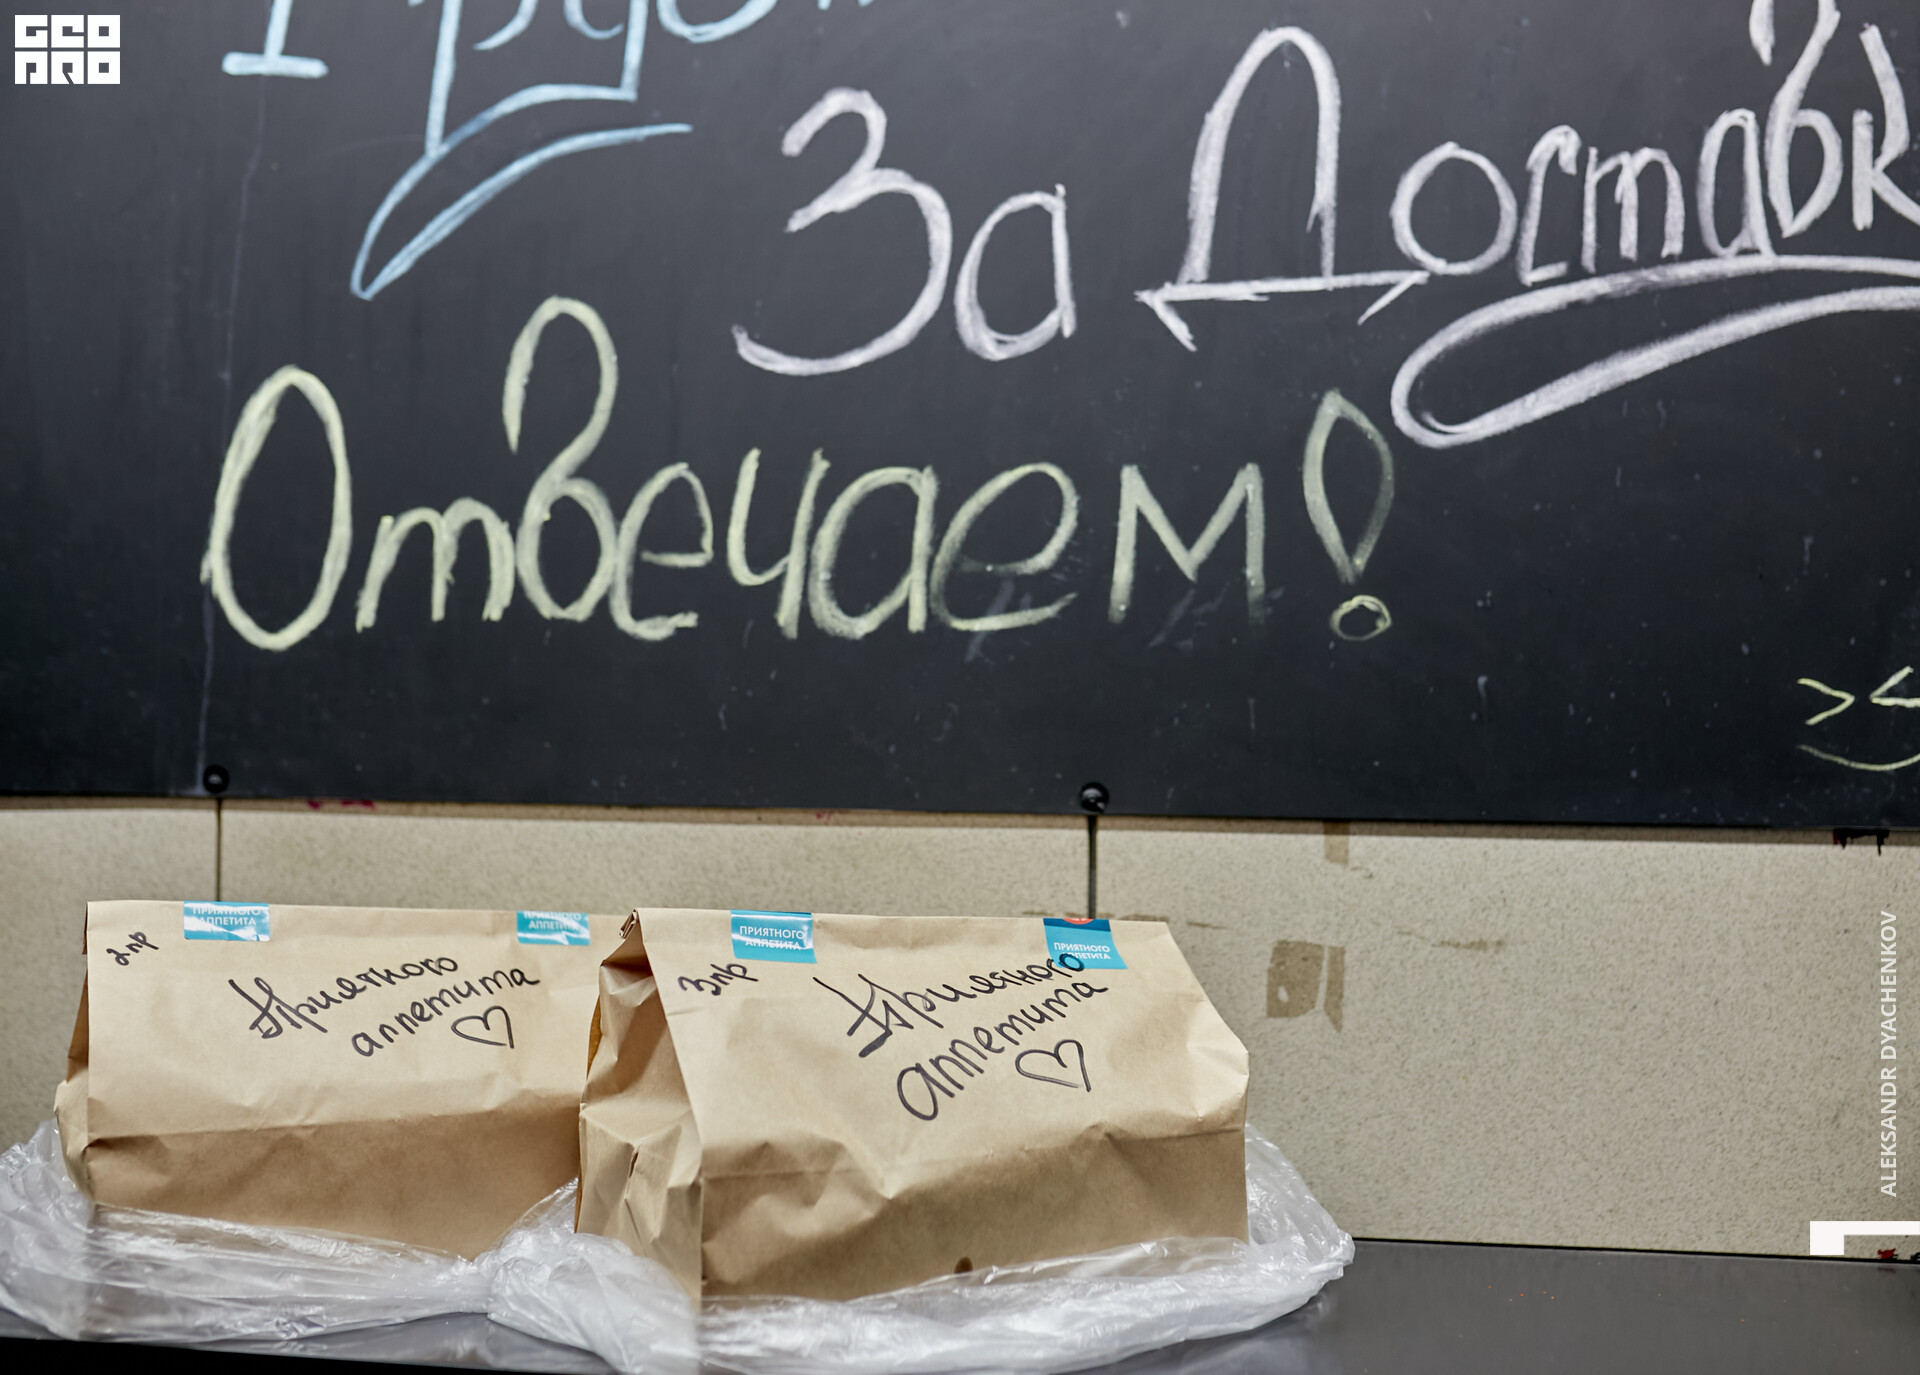 GEO
PRO
За Доставк
Отвечаем!
ПРИЯТНОГО
АППЕТИТА
ПРИЯТНОГО
АППЕТИТА
2 пр
Приятного
аппетита
ПРИЯТНОГО
АППЕТИТА
ПРИЯТНОГО
АППЕТИТА
3 пр
Приятного
аппетита
ALEKSANDR DYACHENKOV